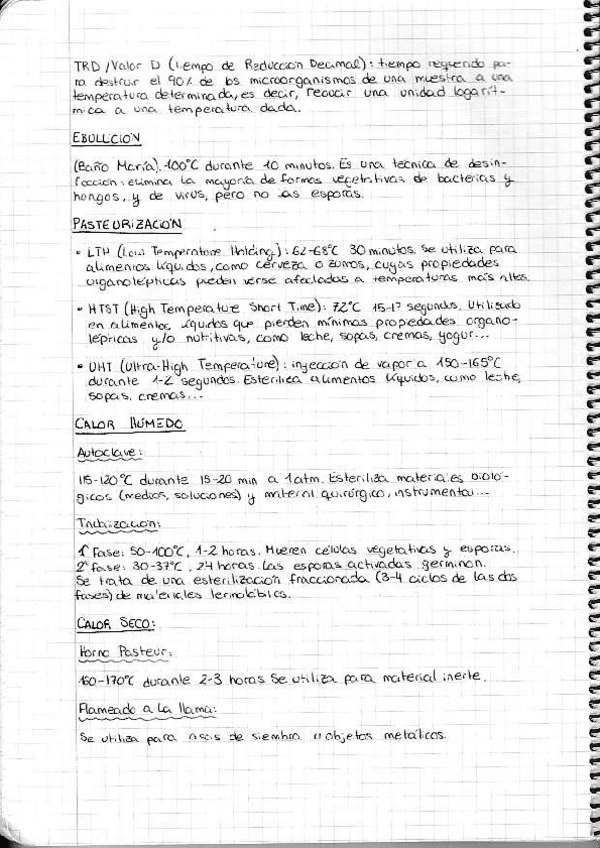 TRD/Valor D (Tiempo de Reducción Decimal): tiempo requerido pa-
ra destruir el 90% de los microorganismos de una muestra a una
temperatura determinada, es decir, reducir una unidad logarít-
mica a una temperatura dada.
EBULLICIÓN
(Baño María). 100°C durante 10 minutos. Es una técnica de desin-
fección: elimina la mayoría de formas vegetativas de bacterias y
hongos, y de virus, pero no las esporas.
PASTEURIZACIÓN
• LTH (Low Temperature Holding): 62-68°C 30 minutos. Se utiliza para
alimentos líquidos, como cerveza o zumos, cuyas propiedades
organolépticas pueden verse afectadas a temperaturas más altas.
• HTST (High Temperature Short Time): 72°C 15-17 segundos. Utilizado
en alimentos líquidos que pierden mínimas propiedades organo-
lépticas y/o nutritivas, como leche, sopas, cremas, yogur...
• UHT (Ultra-High Temperature): inyección de vapor a 150-165°C
durante 1-2 segundos. Esteriliza alimentos líquidos, como leche,
sopas, cremas...
CALOR HÚMEDO
Autoclave:
115-120°C durante 15-20 min a 1atm. Esteriliza materiales bioló-
gicos (medios, soluciones) y material quirúrgico, instrumental...
Tindalización:
1ª Fase: 50-100°C, 1-2 horas. Mueren células vegetativas y esporas.
2ª fase: 30-37°C, 24 horas. Las esporas activadas germinan.
Se trata de una esterilización fraccionada (3-4 ciclos de las dos
fases) de materiales termolábiles.
CALOR SECO:
Horno Pasteur:
160-170°C durante 2-3 horas. Se utiliza para material inerte.
Flameado a la llama:
Se utiliza para asas de siembra u objetos metálicos.